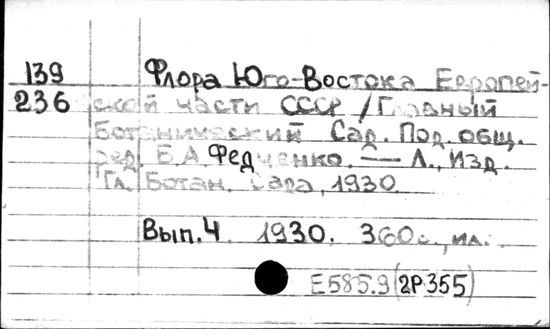 139 Флора Юго-Востока Европей-
236 ской части СССР / Главный
Ботанический Сад. Под общ.
ред. Б.А. Федченко. — Л., Изд.
Гл. Ботан. Сада, 1930.
Вып. 4. 1930. 360с., ил.
Е585.9 (2Р355)